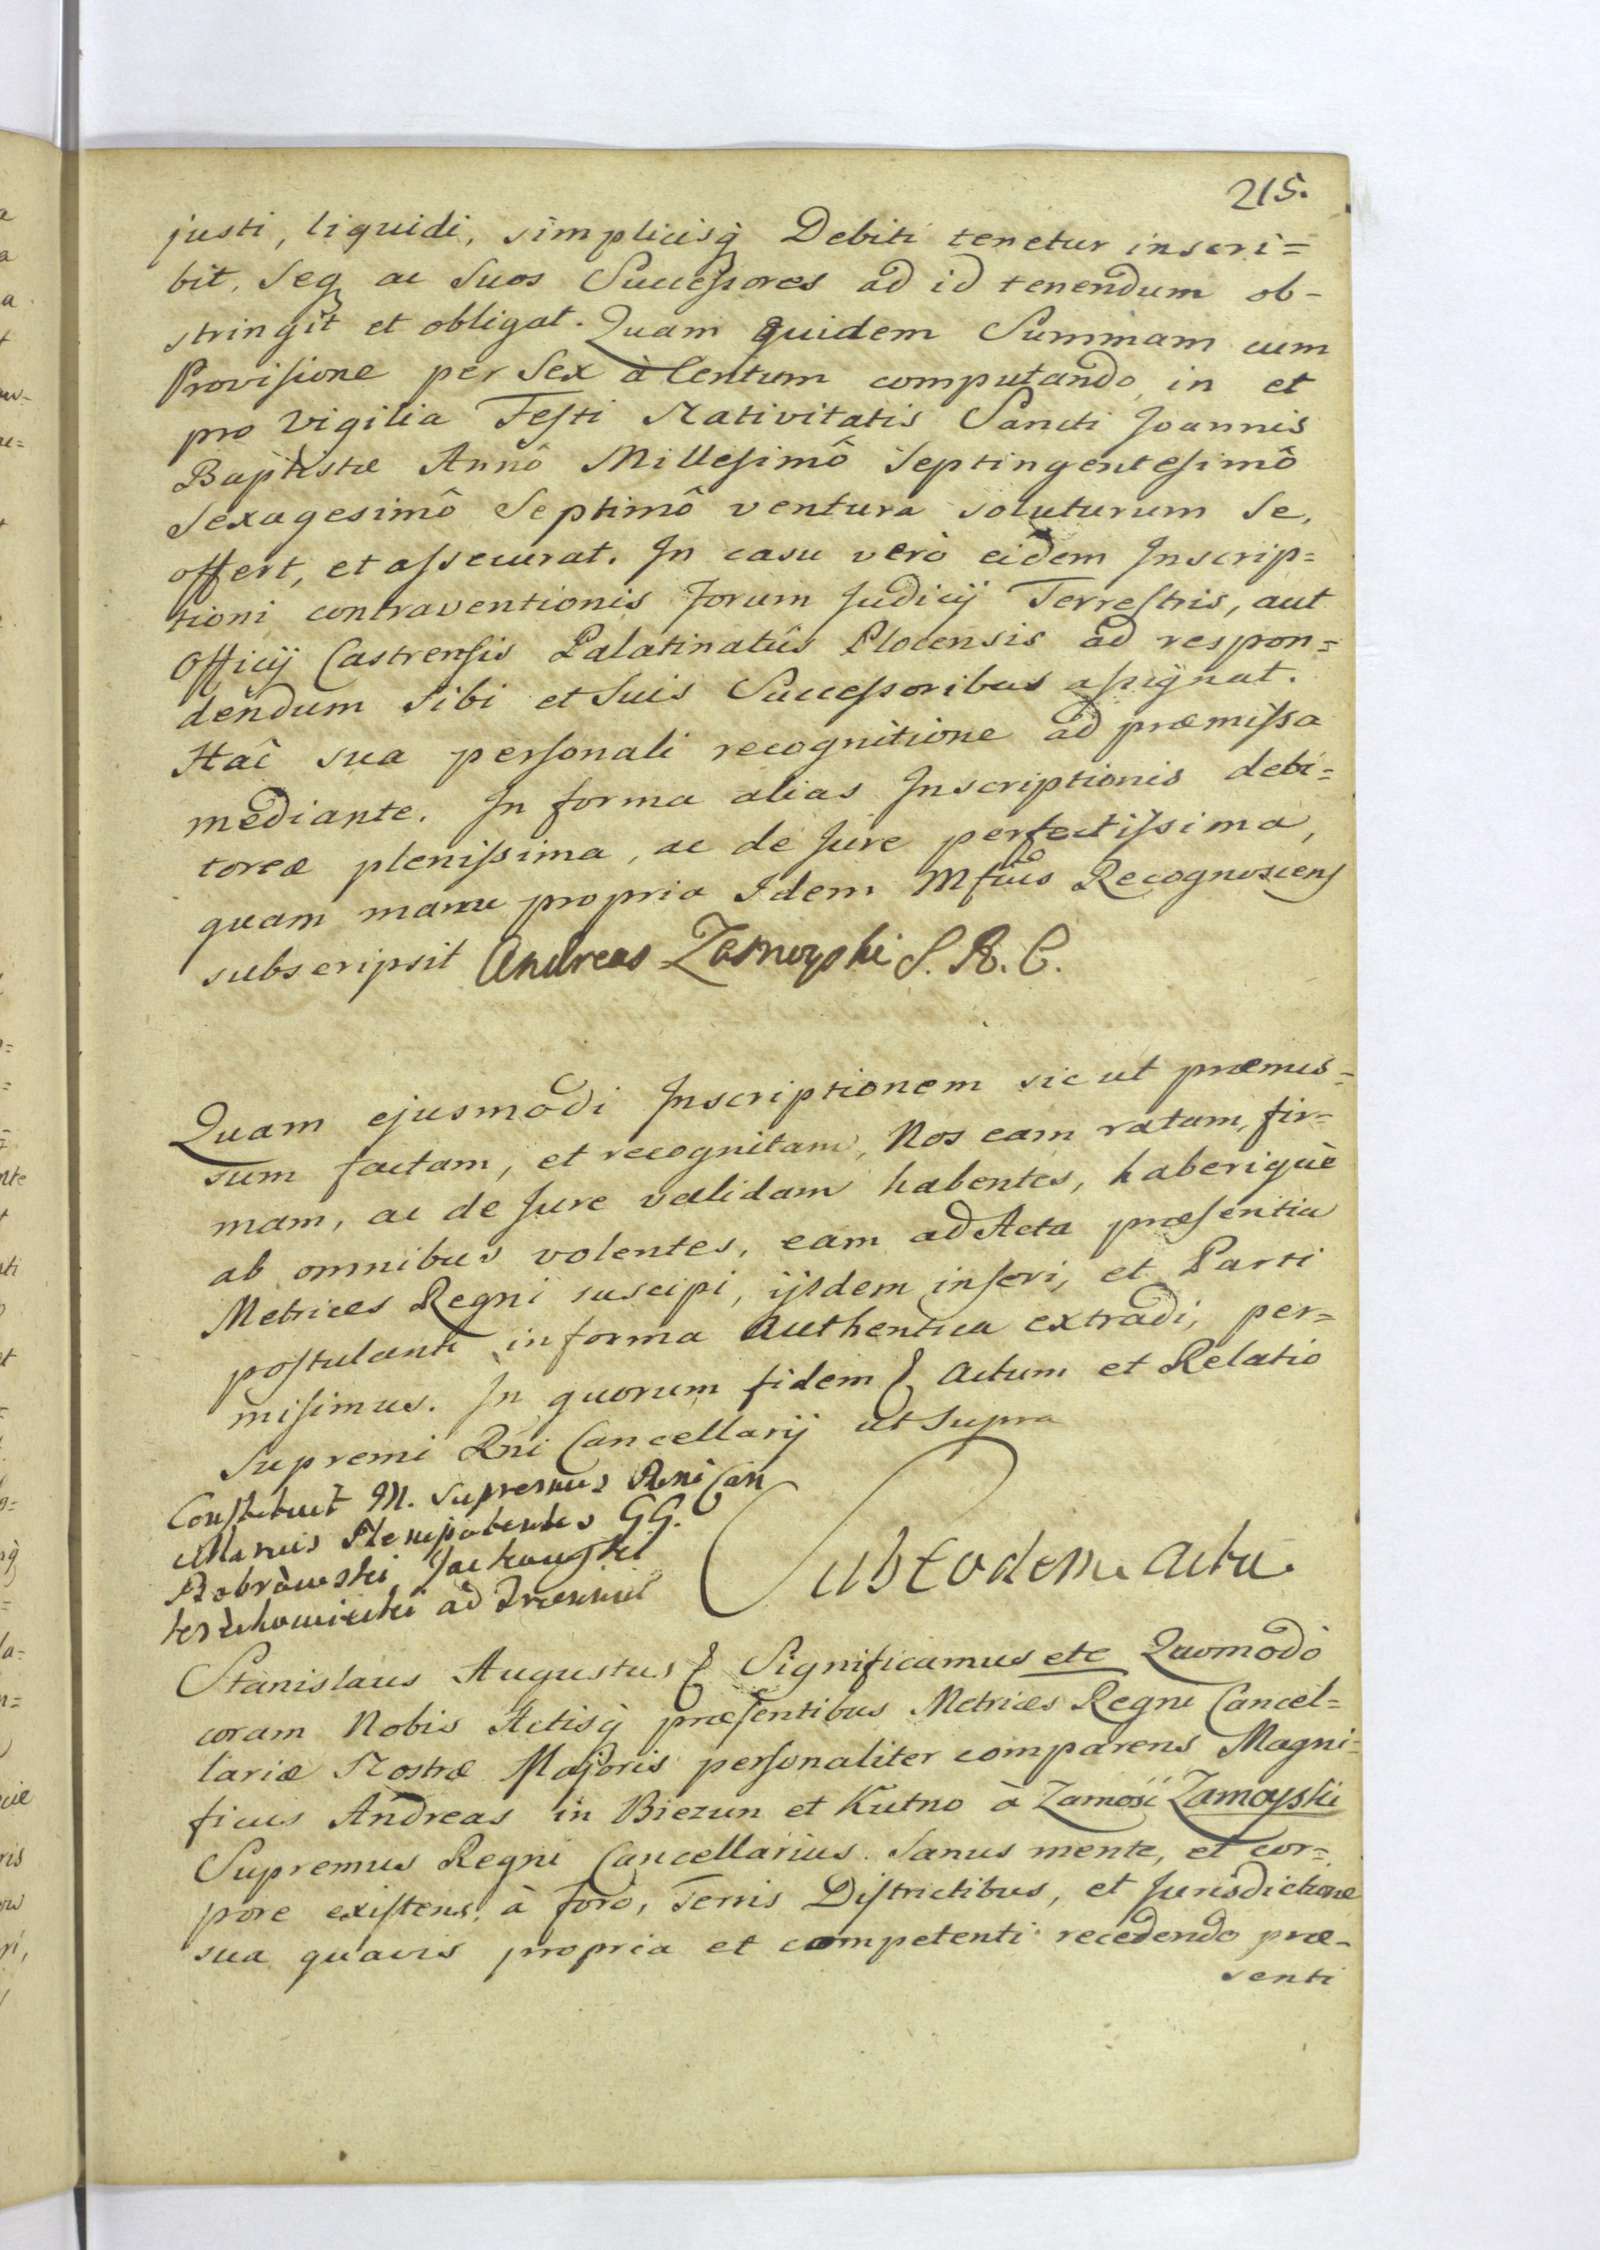 215.
justi, liquidi, simplicisq̃ Debiti tenetur inscri=
bit, Seq̃ ac Suos Successores ad id tenendum ob-
stringit et obligat. Quam quidem Summam cum
Provisione per Sex à Centum computando, in et
pro Vigilia Festi Nativitatis Sancti Joannis
Baptistæ Annô Millesimô Septingentesimô
Sexagesimô Septimô ventura soluturum se,
offert, et assecurat. In casu verò eidem Inscrip=
tioni contraventionis Forum Judicij Terrestris, aut
Officij Castrensis Palatinatûs Plocensis ad respon=
dendum sibi et Suis Successoribus assignat.
Hac sua personali recognitione ad præmissa
mediante. In forma alias Inscriptionis debi=
toreæ plenissima, ac de Jure perfectissima,
quam manu propria Idem Mfcus Recognoscens
subscripsit Andreas Zamoyski S. R. C.
Quam ejusmodi Inscriptionem sic ut præmis=
sum factam, et recognitam, Nos eam ratam, fir=
mam, ac de Jure validam habentes, haberiquè
ab omnibus volentes, eam ad Acta præsentia
Metrices Regni suscipi, ijsdem inseri, et Parti
postulanti in forma authentica extradi, per=
misimus. In quorum fidem & Actum et Relatio
Supremi Rni Cancellarij ut Supra
Constituit M. Supremus Rni Can
cellarius Plenipotentes GG.
Bobrowski
ad Triennium
Sub Eodem Actu
Stanislaus Augustus & Significamus etc Quomodò
coram Nobis Actisq̃ præsentibus Metrices Regni Cancel=
lariæ Nostræ Majoris personaliter comparens Magni=
ficus Andreas in Biezun et Kutno à Zamość Zamoyski
Supremus Regni Cancellarius. Sanus mente, et cor=
pore existens, à foro, Terris Districtibus, et Jurisdictione
sua quavis propria et competenti recedendo præ-
senti